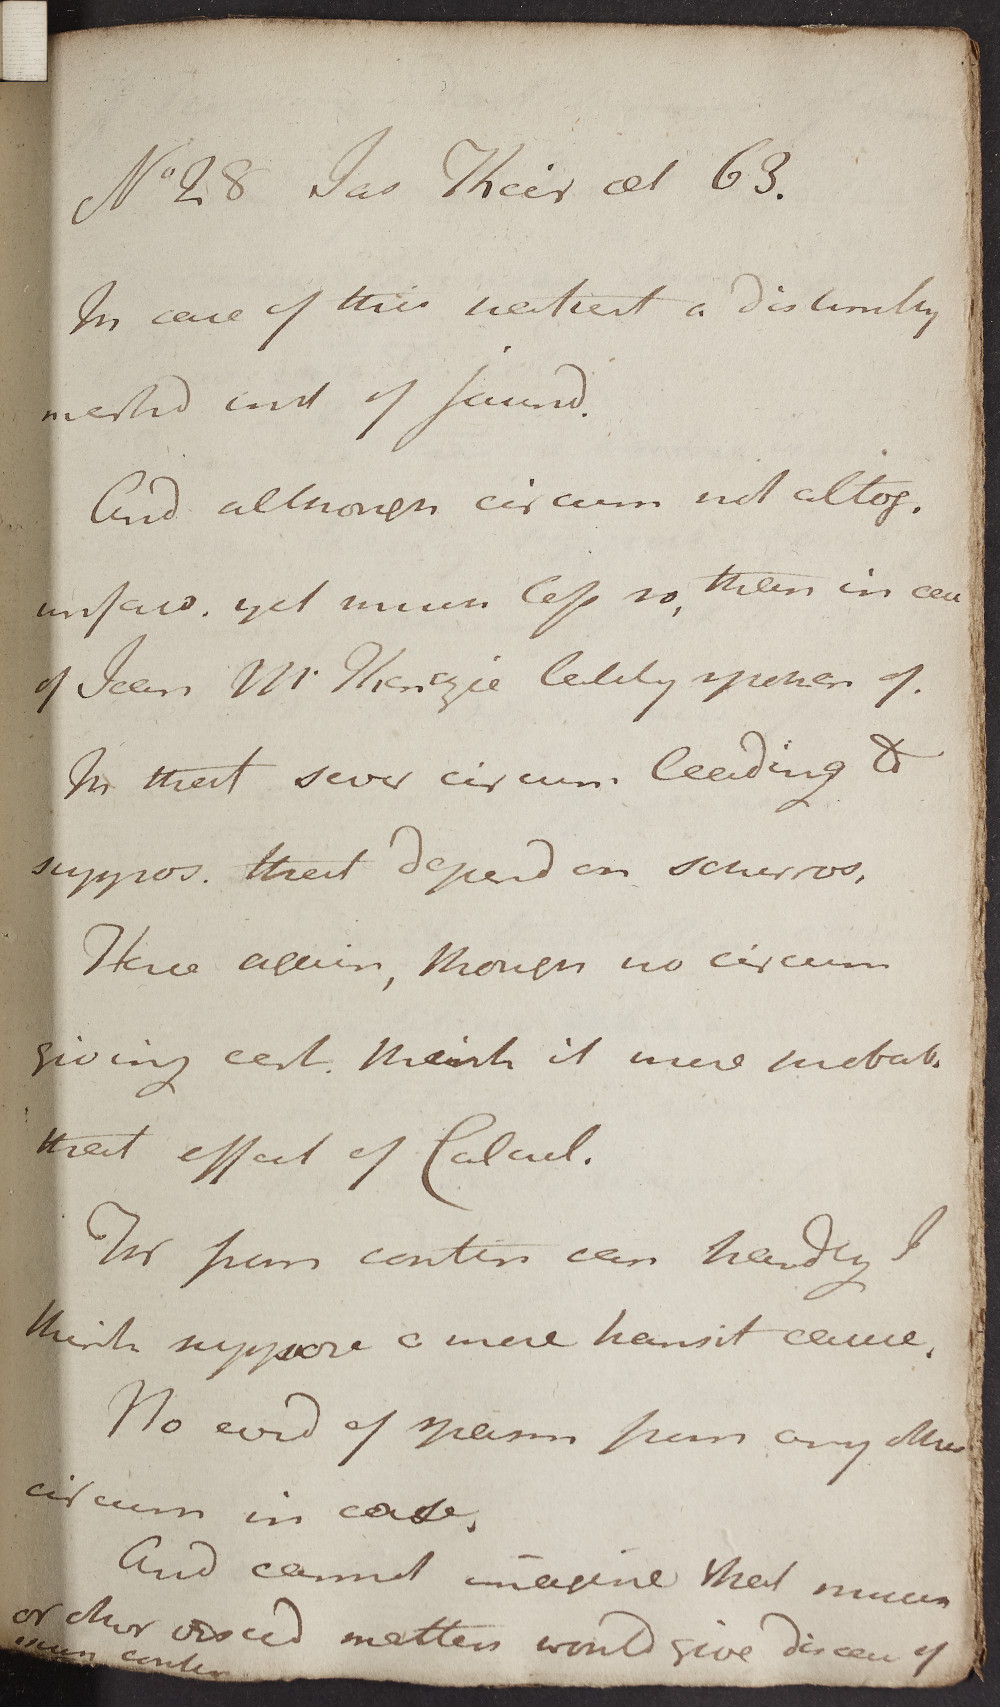 No 28 Jas Keir æt 63.
In case of this patient a distinctly
marked inst of jaund.
And although circum not altog.
unfavo. yet much less so, than in case
of Jean Mc Kenzie lately spoken of.
In that sever circum leading to
suppos. that depend on schirros.
Here again, though no circum
giving cert. think it more probab.
that effect of Calcul.
For from contin can hardly I
think suppose a mere transit cause.
No evid of spasm from any other
circum in case.
And cannot imagine that mucus
or other viscid matters would give disease of
such contin